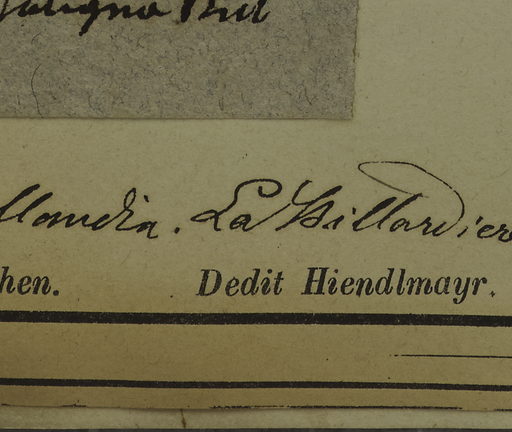 saligna Bnd
llandia. La Billardiere
hen. Dedit Hiendlmayr.